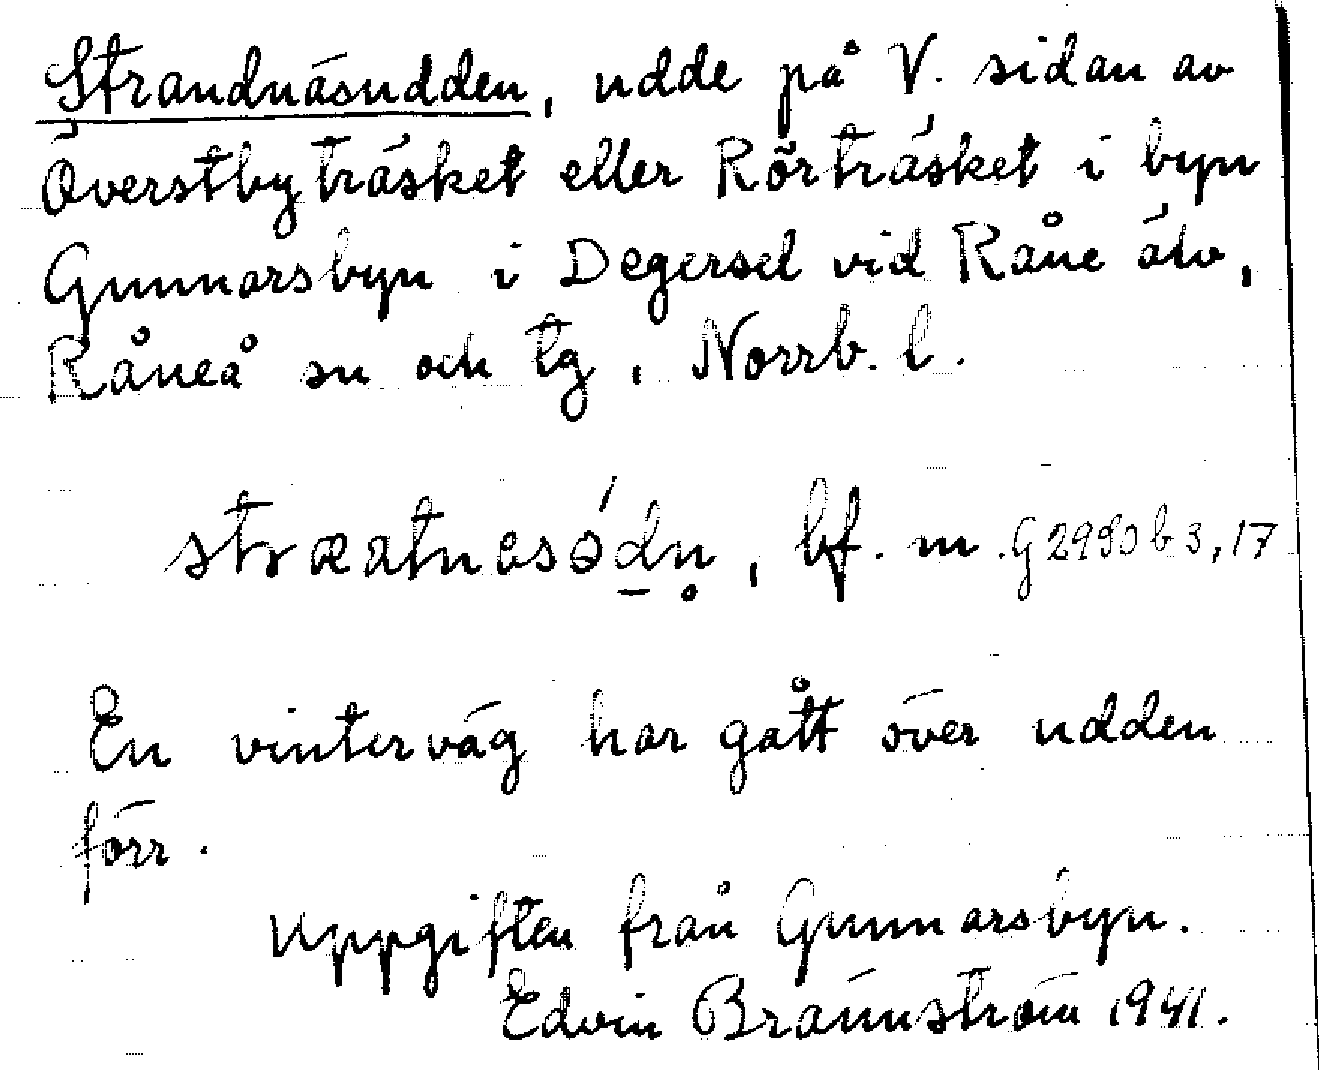 Strandnäsudden, udde på V. sidan av
Överstbyträsket eller Rörträsket i byn
Gunnarsbyn i Degersel vid Råne älv,
Råneå sn och tg, Norrb. l.
bf. m. G 2980 b 3, 17
En vinterväg har gått över udden
förr.
Uppgiften från Gunnarsbyn.
Edvin Brännström 1941.